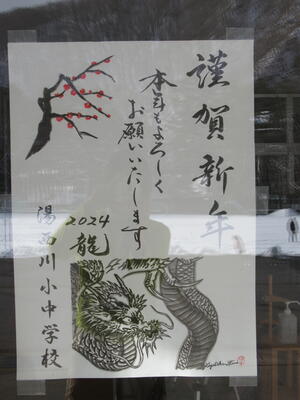 謹賀新年
本年もよろしく
お願いいたします
2024
龍
湯西川小中学校